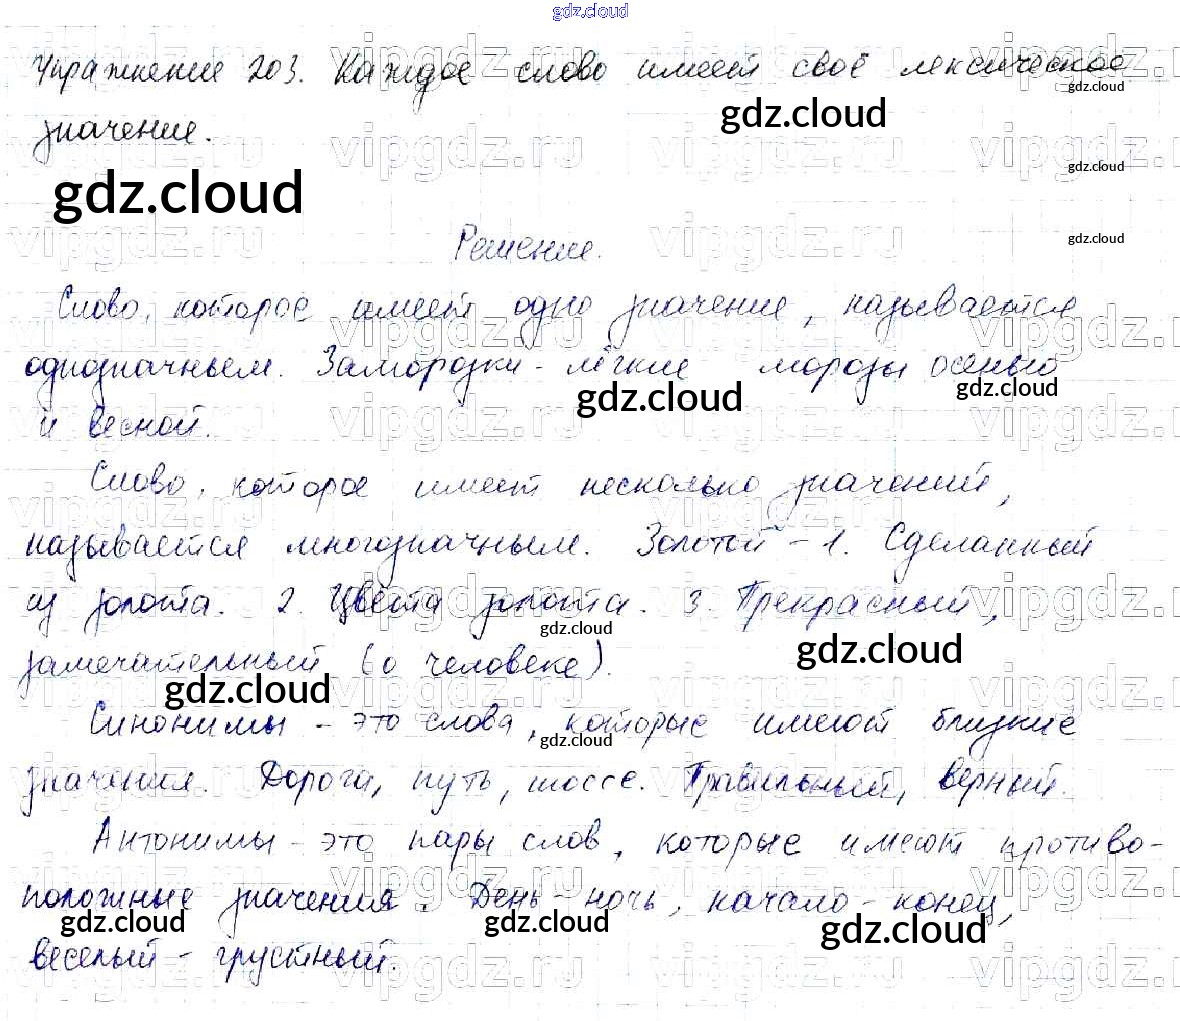 gdz.cloud
Упражнение 203. Каждое слово имеет своё лексическое
gdz.cloud
gdz.cloud
значение.
vipgdz.ru vipgdz.ru vipgdz.ru
gdz.cloud
gdz.cloud
gdz.cloud
Решение.
Слово, которое имеет одно значение, называется
однозначным. Заморозки - лёгкие морозы осенью
gdz.cloud
gdz.cloud
и весной.
Слово, которое имеет несколько значений,
называется многозначным. Золотой - 1. Сделанный
из золота. 2. Цвета золота. 3. Прекрасный,
gdz.cloud
gdz.cloud
замечательный (о человеке).
gdz.cloud
Синонимы - это слова, которые имеют близкие
gdz.cloud
значения. Дорога, путь, шоссе. Правильный, верный.
Антонимы - это пары слов, которые имеют противо-
положные значения. День - ночь, начало - конец,
gdz.cloud gdz.cloud gdz.cloud
веселый - грустный.